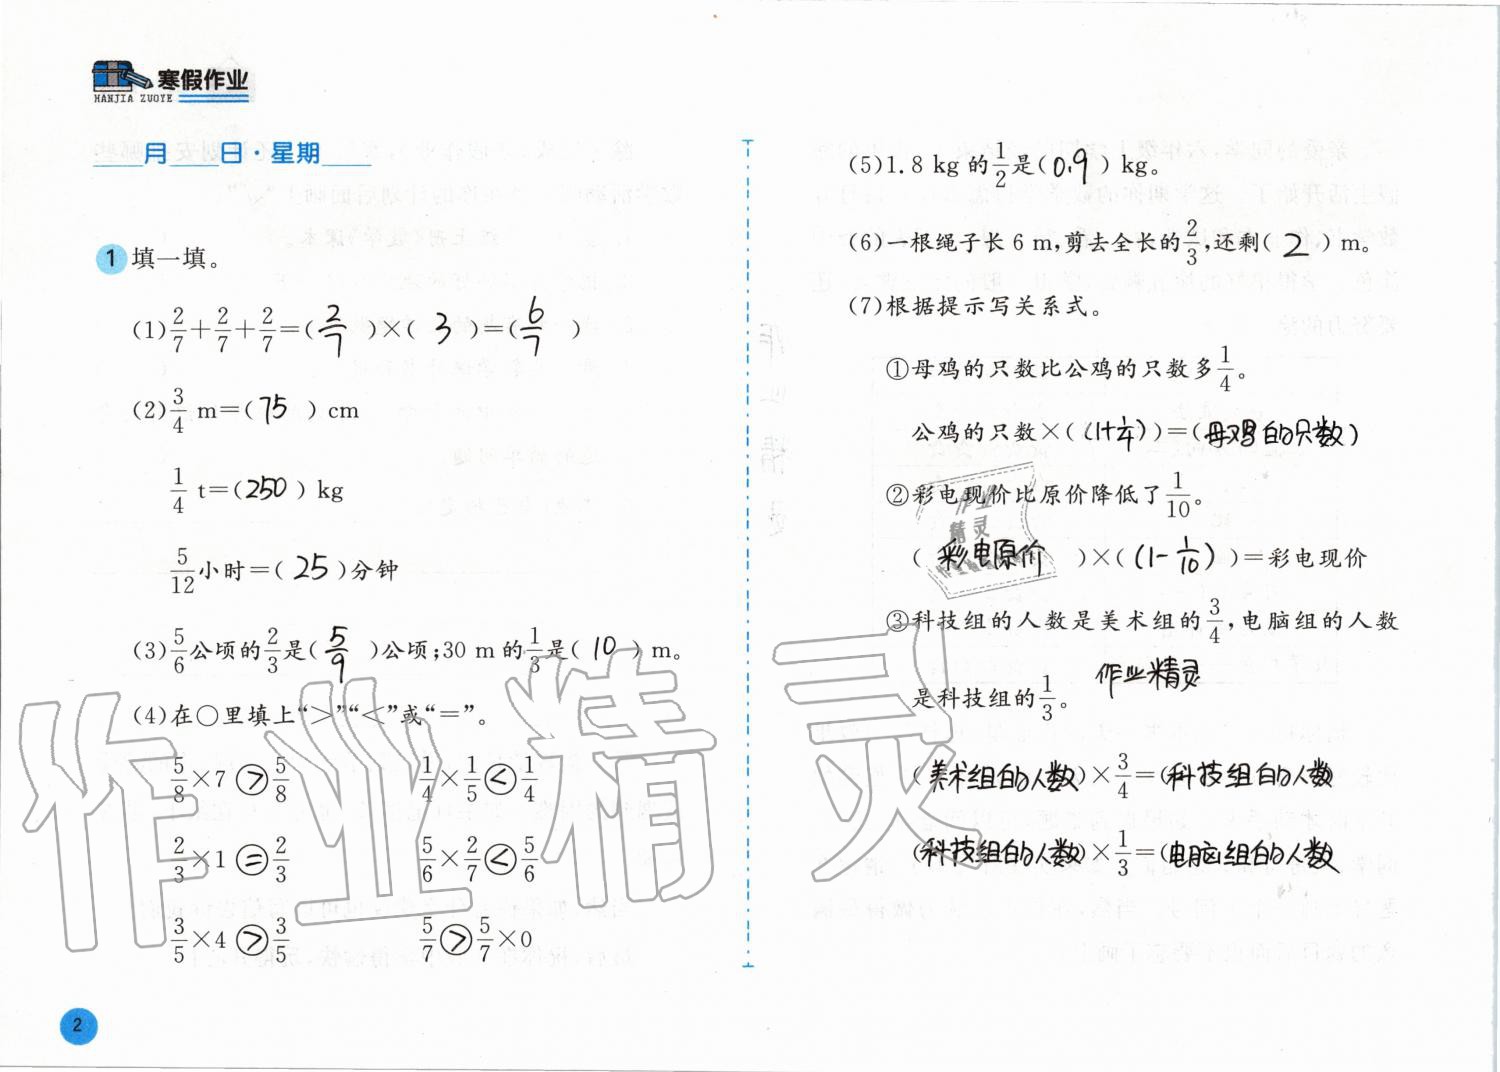 寒假作业
HANJIA ZUOYE
月 日·星期
1 填一填。
(1) 2/7+2/7+2/7=( 2/7 )×( 3 )=( 6/7 )
(2) 3/4 m=( 75 ) cm
1/4 t=( 250 ) kg
5/12 小时=( 25 )分钟
(3) 5/6 公顷的 2/3 是( 5/9 )公顷;30 m 的 1/3 是( 10 ) m。
(4)在○里填上“>”“<”或“=”。
5/8×7 > 5/8 1/4×1/5 < 1/4
2/3×1 = 2/3 5/6×2/7 < 5/6
3/5×4 > 3/5 5/7 > 5/7×0
2
(5)1.8 kg 的 1/2 是( 0.9 ) kg。
(6)一根绳子长 6 m,剪去全长的 2/3,还剩( 2 ) m。
(7)根据提示写关系式。
①母鸡的只数比公鸡的只数多 1/4。
公鸡的只数×( (1+1/4) )=( 母鸡的只数 )
②彩电现价比原价降低了 1/10。
( 彩电原价 )×( (1-1/10) )=彩电现价
③科技组的人数是美术组的 3/4,电脑组的人数
是科技组的 1/3。
作业精灵
(美术组的人数)×3/4=(科技组的人数
(科技组的人数)×1/3=(电脑组的人数
作业精灵
作业
精灵